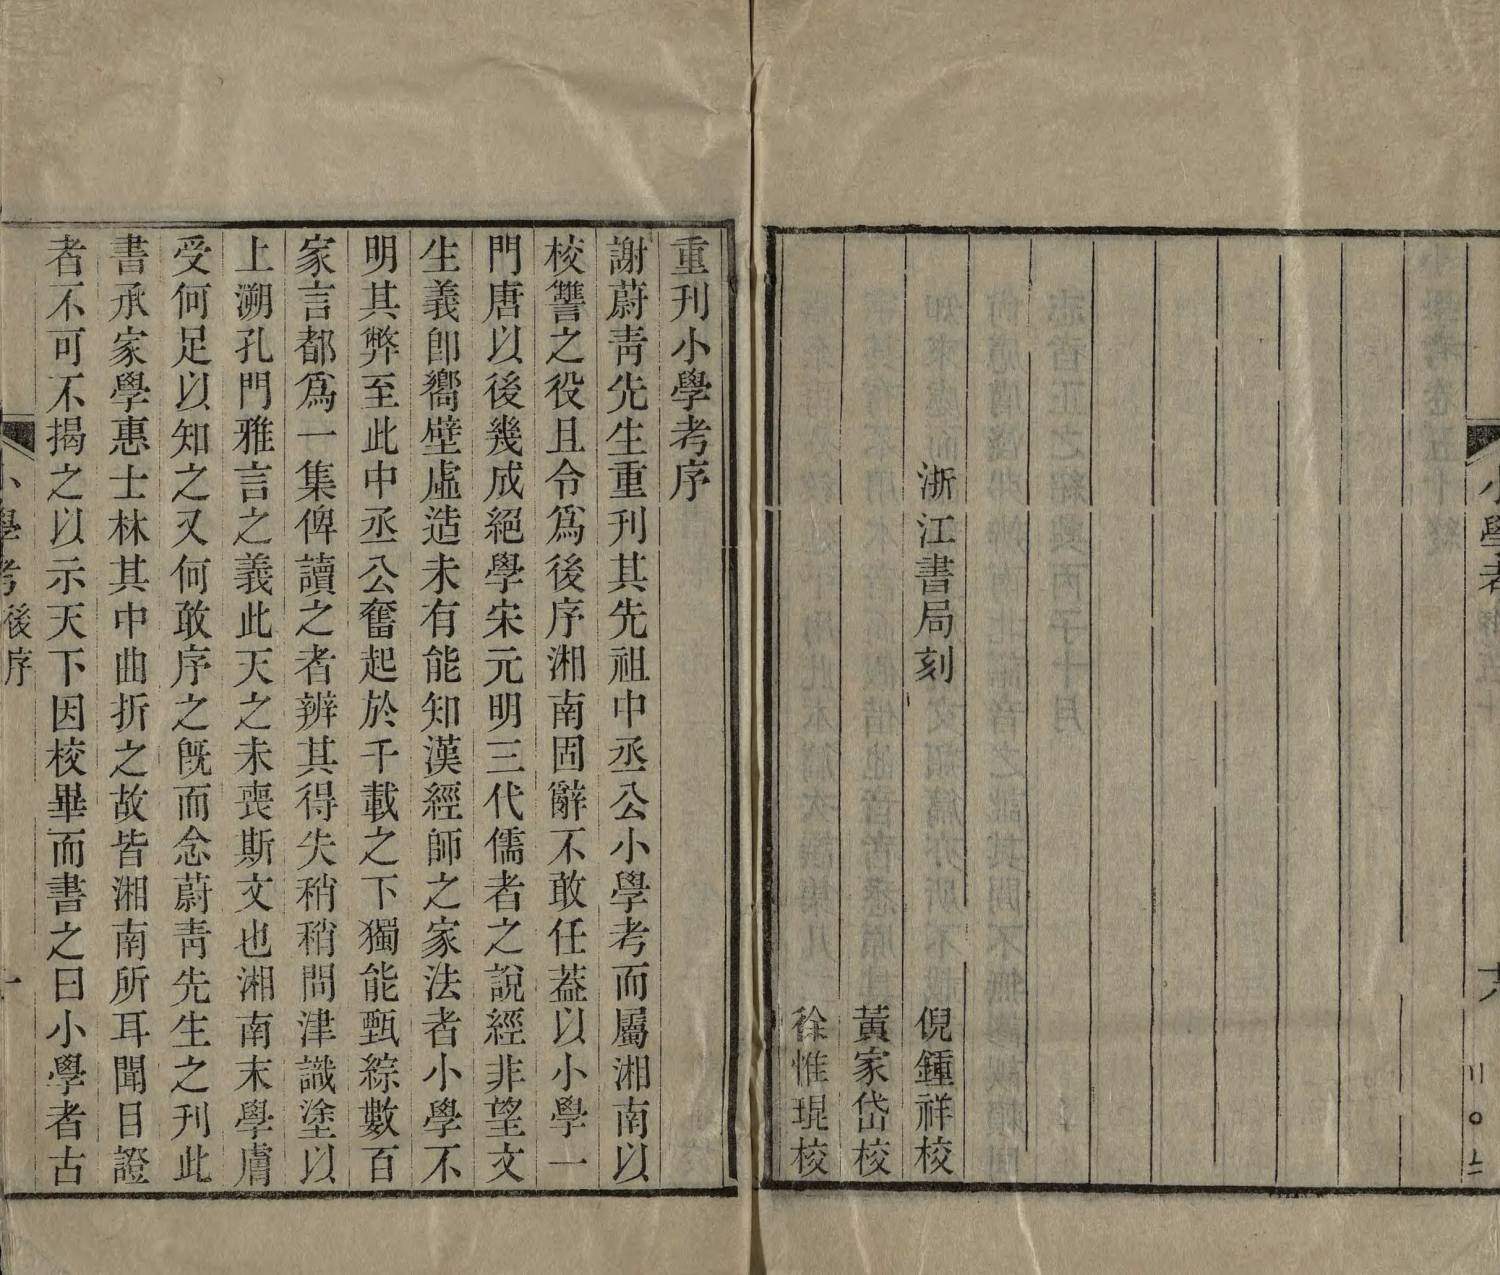 小學考
六
浙江書局刻
倪鍾祥校
黃家岱校
徐惟琨校
重刊小學考序
謝蔚靑先生重刊其先祖中丞公小學考而屬湘南以
校讐之役且令爲後序湘南固辭不敢任葢以小學一
門唐以後幾成絕學宋元明三代儒者之說經非望文
生義卽嚮壁虛造未有能知漢經師之家法者小學不
明其弊至此中丞公奮起於千載之下獨能甄綜數百
家言都爲一集俾讀之者辨其得失稍稍問津識塗以
上溯孔門雅言之義此天之未喪斯文也湘南末學膚
受何足以知之又何敢序之旣而念蔚靑先生之刊此
書承家學惠士林其中曲折之故皆湘南所耳聞目證
者不可不揭之以示天下因校畢而書之曰小學者古
小學考後序
一